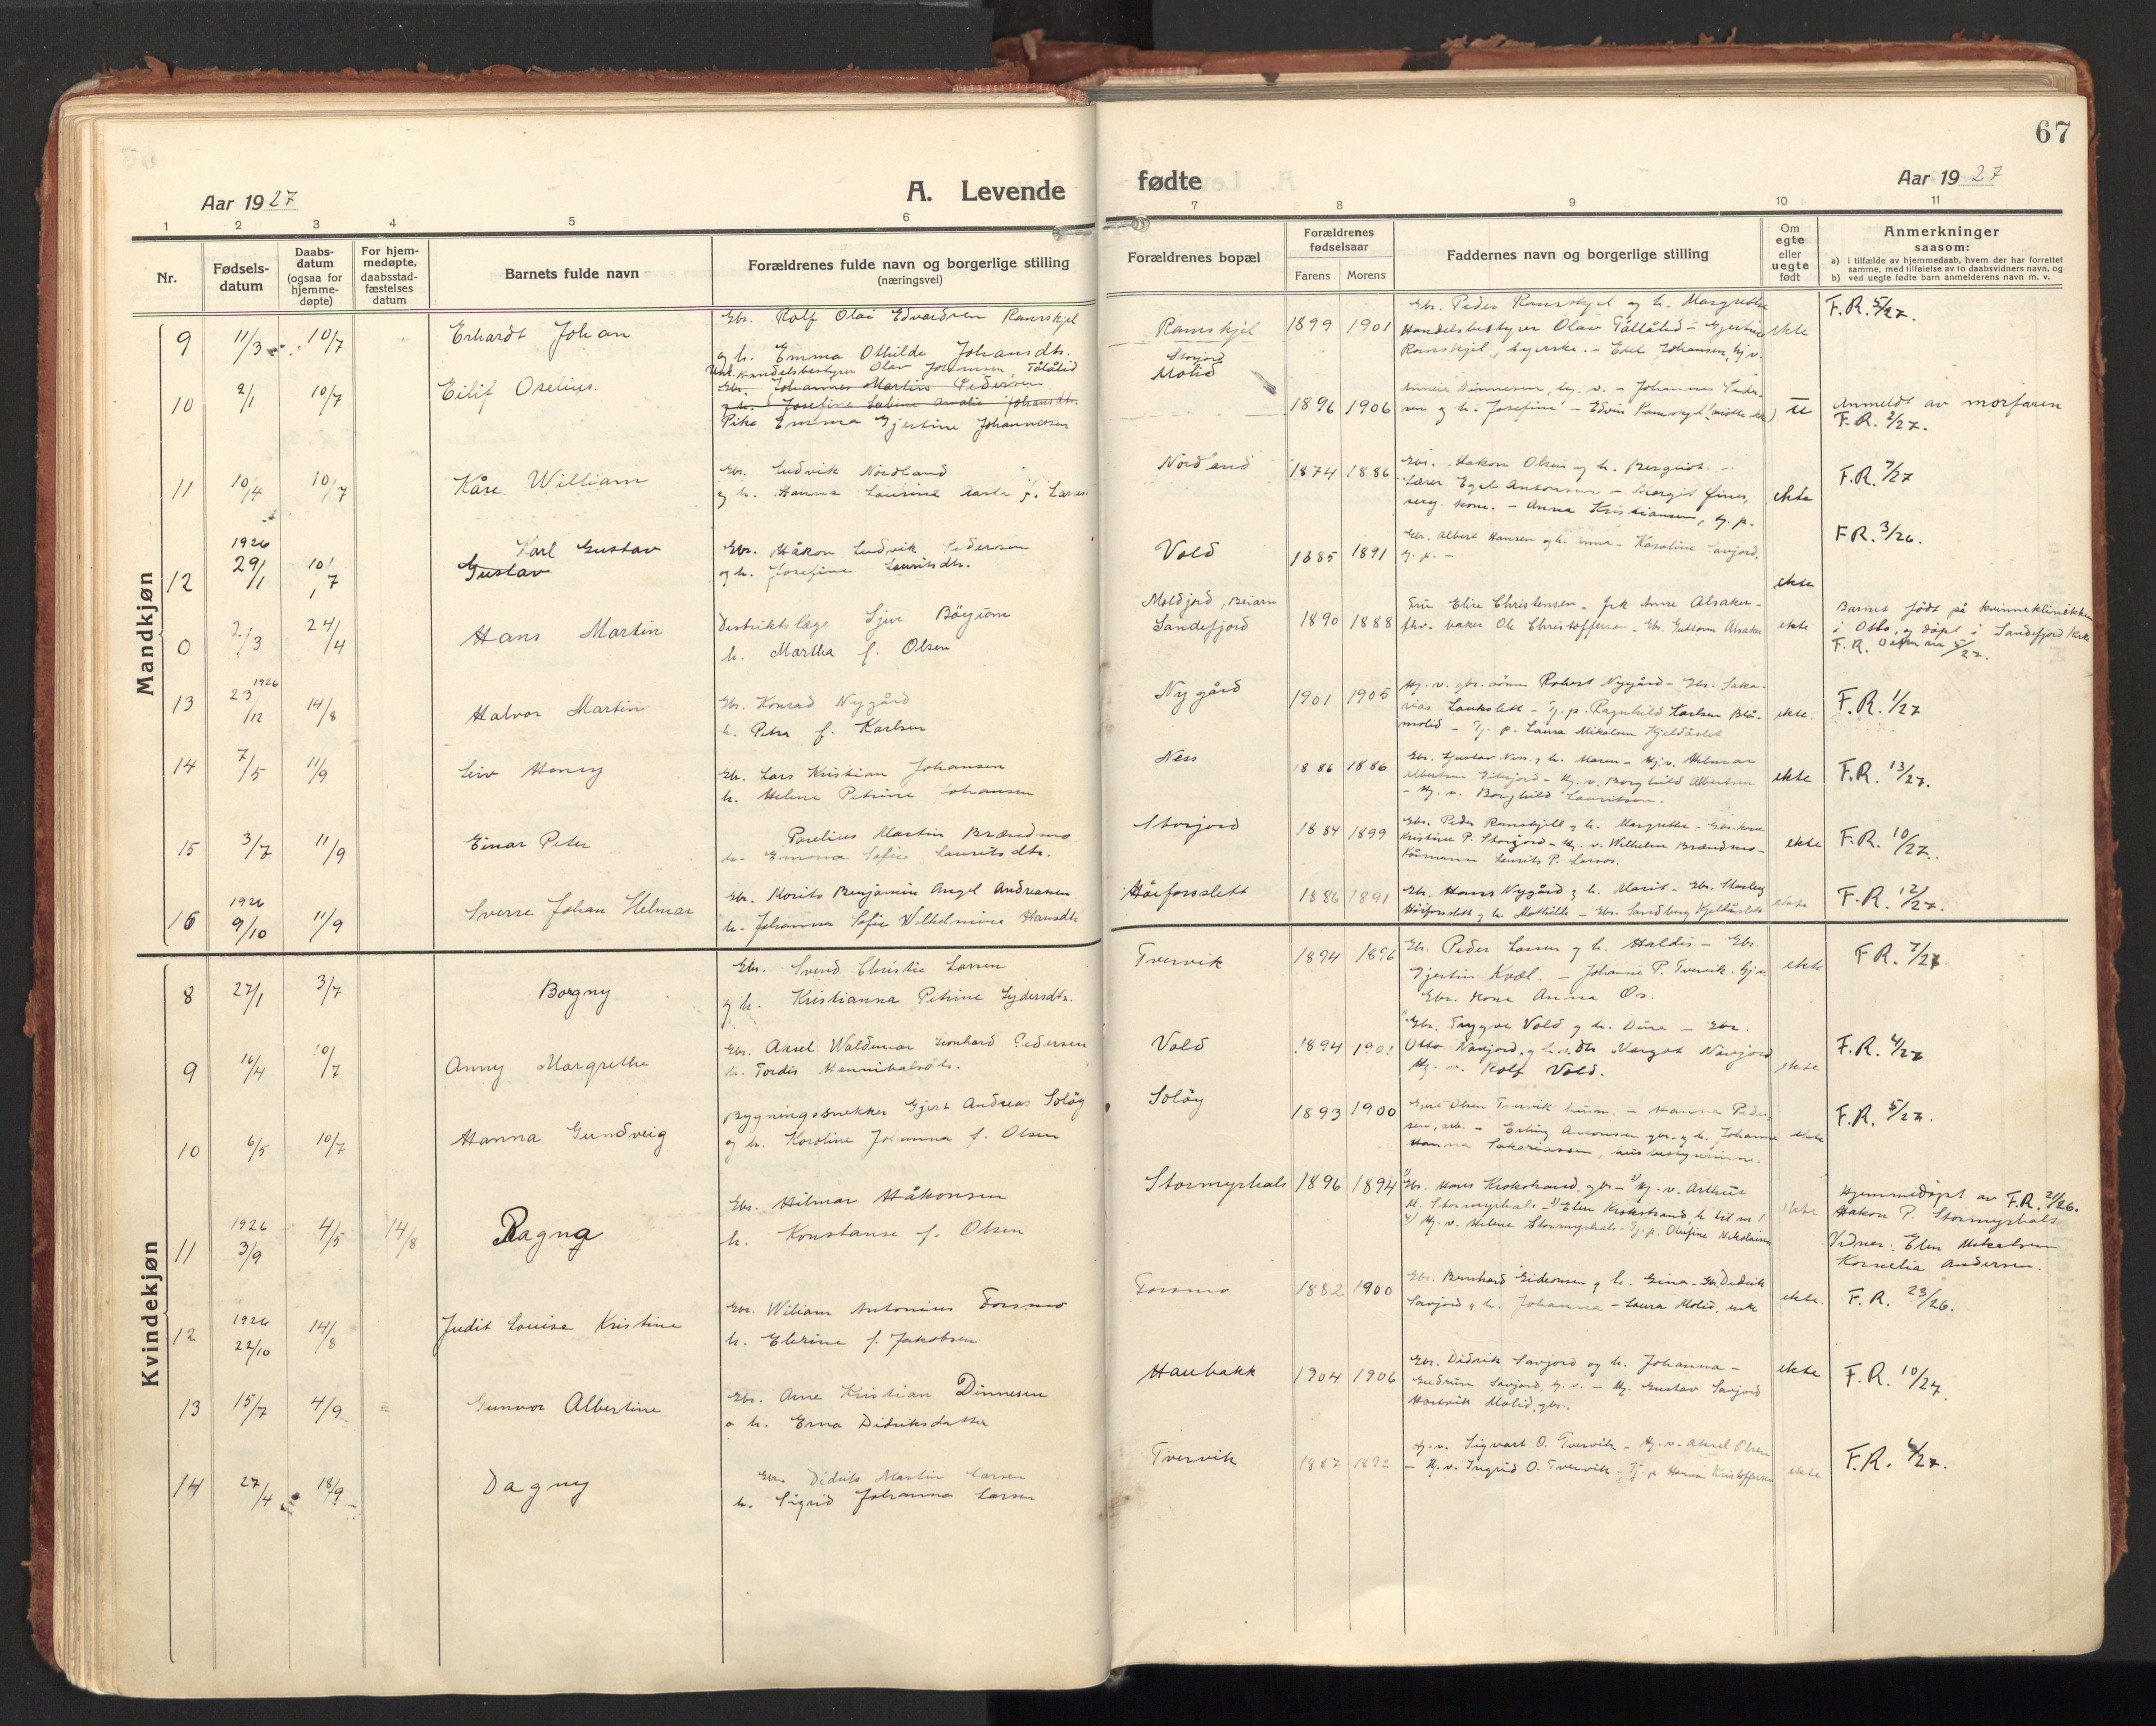 67
Aar 1927
A. Levende
fødte
Aar 1927
1 2 3 4 5 6 7 8 9 10 11
Nr.
Fødsels-
datum
Daabs-
datum
(ogsaa for
hjemme-
døpte)
For hjem-
medøpte,
daabsstad-
fæstelses
datum
Barnets fulde navn
Forældrenes fulde navn og borgerlige stilling
(næringsvei)
Forældrenes bopæl
Forældrenes
fødselsaar
Farens Morens
Faddernes navn og borgerlige stilling
Om
egte
eller
uegte
født
Anmerkninger
saasom:
a) i tilfælde av hjemmedaab, hvem der har forrettet
samme, med tilføielse av to daabsvidners navn, og
b) ved uegte fødte barn anmelderens navn m. v.
Mandkjøn
9 11/3 10/7 Erhardt Johan
Gbr. Rolf Olai Edvardsen Ramskjel
og h. Emma Othilde Johansdtr.
Ramskjel 1899 1901
Gbr. Peder Ramskjel og h. Margrethe
Handelsbestyrer Olav Tållålid - Gjertine
Ramskjel, syerske. - Edel Johansen, hj. v.
ekte
F.R. 5/27.
10 2/1 10/7 Eilif Oselius.
Unk. Handelsbestyrer Olav Johansen, Tålålid
Gbr. Johannes Martin Pedersen
og h. Josefine Sabine Amalie Johansdtr.
Pike Emma Gjertine Johannessen
Storjord
Molid
1896 1906
Dinnesen, hj. v. - Johannes Peder-
sen og h. Josefine - Edvin
u
Anmeldt av morfaren
F.R. 2/27.
11 10/4 10/7 Kåre William
Gbr. Ludvik Nordland
og h. Hanna Laurine f. Larsen
Nordland 1874 1886
Gbr. Hakon Olsen og h. Bergliot. -
Lærer Antonsen -
kone. - Anna Kristiansen, hj. p.
ekte
F.R. 7/27
12 1926 29/1 10/7 Karl Gustav
Gustav
Gbr. Håkon Ludvik Pedersen
og h. Josefine Lauritsdtr.
Vold 1885 1891
Gbr. Albert Hansen og h. Anna - Karoline Savjord,
hj. p. -
ekte
F.R. 3/26.
0 2/3 24/4 Hans Martin
Distriktslæge Sjur Bøyum
h. Martha f. Olsen
Moldjord, Beiarn
Sandefjord
1890 1888
Fru Elise Christensen - frk Anne Alsaker -
fhv. baker Ole Christoffersen. Gbr. Guttorm Alsaker
ekte
Barnet født på kvinneklinikken
i Oslo, og døpt i Sandefjord kirke
F.R.
13 23/12 1926 14/8 Halvor Martin
Gbr. Konrad Nygård
h. Petra f. Karlsen
Nygård 1901 1905
Hj. v. gbr. sønn Robert Nygård - Gbr. Saka-
rias Laukslett - Tj. p. Ragnhild Karlsen Blå-
molid - Tj. p. Laura Mikalsen Kjeldåslet
ekte.
F.R. 1/27
14 7/5 11/9 Leiv Henry
Gbr. Lars Kristian Johansen
h. Helene Petrine Johansen
Ness 1886 1886
Gbr. Gustav Ness og h. Maren - Hj. v. Helmar
Albertsen - Hj. v. Borghild Albertsen
- Hj. v. Borghild Lauritsen.
ekte
F.R. 13/27.
15 3/7 11/9 Einar Peter
Parelius Martin Brændmo
h. Emma Sofie Lauritsdtr.
Storjord 1884 1899
Gbr. Peder Ramskjell og h. Margrethe - Gbr. kone
Kristine P. Storjord - Hj. v. Wilhelm Brændmo -
Laurits P. Larsos.
ekte
F.R. 10/27.
16 1926 9/10 11/9 Sverre Johan Helmar
Gbr. Morits Benjamin Angel Andreassen
h. Johanna Sofie Wilhelmine Hansdtr
Høiforsslett 1886 1891
Gbr. Hans Nygård og h. Marit - Gbr.
Høiforsslett og h. Mathilde - Gbr. Sandberg Kjeldåslett
ekte
F.R. 12/27.
Kvindekjøn
8 27/1 3/7 Borgny
Gbr. Svend Christie Larsen
og h. Kristianna Petrine Lydersdtr.
Tvervik 1894 1896
Gbr. Peder Larsen og h. Haldis - Gbr.
Gjertin Kvæl. - Johanne P. Tvervik. hj. v.
Gbr. kone Anna Os.
ekte
F.R. 7/27
9 16/4 10/7 Anny Margrethe
Gbr. Aksel Waldemar Leonhard Pedersen
h. Tordis Hannibalsdtr.
Vold 1894 1901
Gbr. Trygve Vold og h. Dina - Gbr.
Otto Navjord og h. Margot Navjord
Hj. v. Rolf Vold.
ekte
F.R. 4/27
10 6/5 10/7 Hanna Gundveig
Bygningssnekker Gjert Andreas Soløy
og h. Karoline Johanna f. Olsen
Soløy 1893 1900
Gjert Olsen Tvervik - Hanna Peder-
sen, arb. - Erling Antonsen gbr. og h. Johanne
Hanna Sakariassen, husbestyrerinne.
ekte
F.R. 5/27.
11 1926 3/9 4/5 14/8 Ragna
Gbr. Hilmar Håkonsen
h. Konstanse f. Olsen
Stormyrhals 1896 1894
1) Gbr. Hans Krokstrand, gbr - 2) Hj. v. Arthur
H. Stormyrhals - 3) Elen Krokstrand h til nr 1
4) Hj. v. Helene Stormyrhals - Tj. p. Olufine Nikolaisen
ekte
Hjemmedøpt av F.R. 21/26.
Hakon P. Stormyrhals
Vidner: Elen Mikalsen
Kornelia Andersen.
12 1926 22/10 14/8 Judit Louise Kristine
Gbr. Wiliam Antonius Forsmo
h. Elerine f. Jakobsen
Forsmo 1882 1900
Gbr. Bernhard Gideonsen og h. Gina - Gbr. Didrik
Savjord og h. Johanna - Laura Molid, enke
ekte.
F.R. 23/26.
13 15/7 4/9 Gunvor Albertine
Gbr. Arne Kristian Dinnesen
o h. Erna Didriksdatter
Haubakk 1904 1906
Gbr. Didrik Savjord og h. Johanna -
Gudrun Savjord, hj. v. - Hj. Gustav Savjord
Hartvik Molid, gbr.
ekte
F.R. 10/27.
14 27/4 18/9 Dagny
Gbr. Didrik Martin Larsen
h. Sigrid Johanna Larsen
Tvervik 1887 1892
Hj. v. Sigvart O. Tvervik - Hj. v. Aksel Olsen
- Hj. v. Ingrid O. Tvervik - Tj. p Hanna Kristoffersen
ekte
F.R. 6/27.